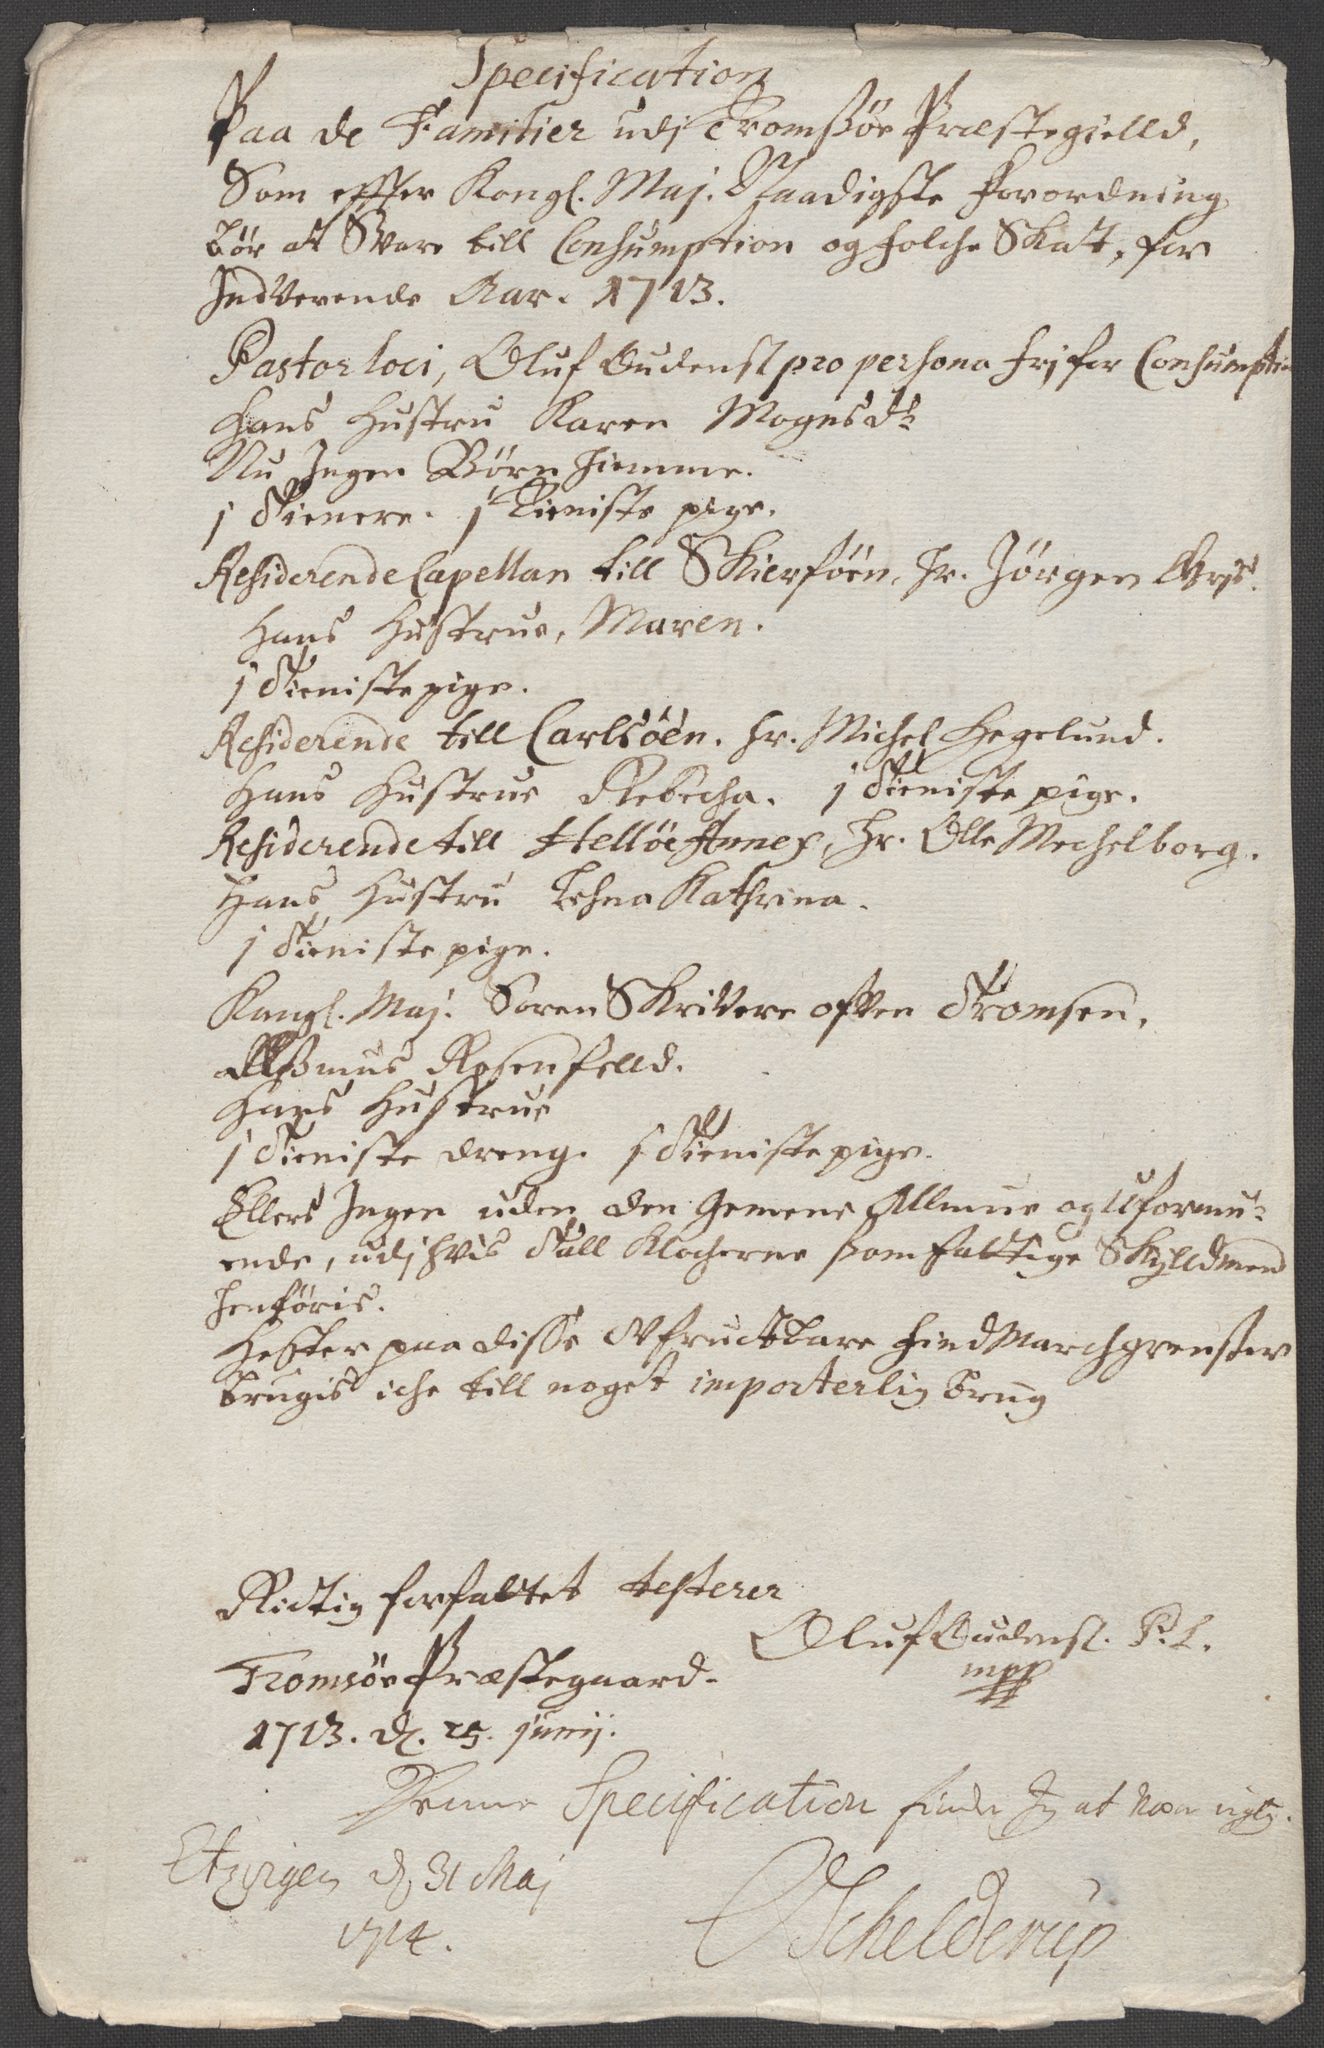 Specification
Paa de Familier udj Tromsöe Præstegielld,
Som effter Kongl. Maj. Naadigste Forordning
bör at Svare till Consumption og folche Skatt, for
Indverende Aar. 1713.
Pastor loci, Oluf Oudensl pro persona frj for Consumption
Hans Hustru Karen Mognsdr
Nu Ingen Börn hiemme.
1 Tienere. 1 Tieniste pige.
Residerende Capellan till Skierföen, Hr. Jörgen
Hans Hustrue, Maren.
1 Tieniste pige.
Residerende till Carlsöen. Hr. Michel Hegelund.
Hans Hustrue Rebecha. 1 Tieniste pige.
Residerende till Hellöe Annex, Hr. Olle Mechelborg.
Hans Hustru Lehna Kathrina.
1 Tieniste pige.
Kongl. Maj. Soren Skrivere offver Tromsen,
Aßmus Rosenfelld.
Hans Hustrue
1 Tieniste dreng. 1 Tieniste pige.
Ellers Ingen uden den Gemene Allmue og Uformu-
ende, udj hvis Tall Klocherne som fattige Skylldmend
henföris.
Hester paa disse Ufrucktbare Find March grentzer
brugis iche till noget importerlig brug
Rictig forfattet testerer
Oluf Oudensl. P. L.
mpp
Tromsöe Præstegaard.
1713. d. 25. junij.
Denne Specification finder Jeg at være rigtig.
Elvejrgen d 31 Maj
1714.
O Schelderup